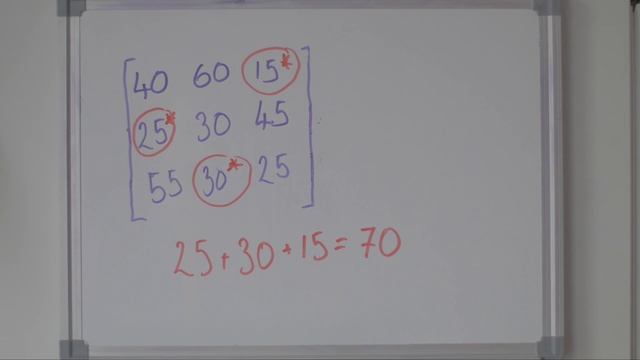 40 60 15*
25* 30 45
55 30* 25
25 + 30 + 15 = 70